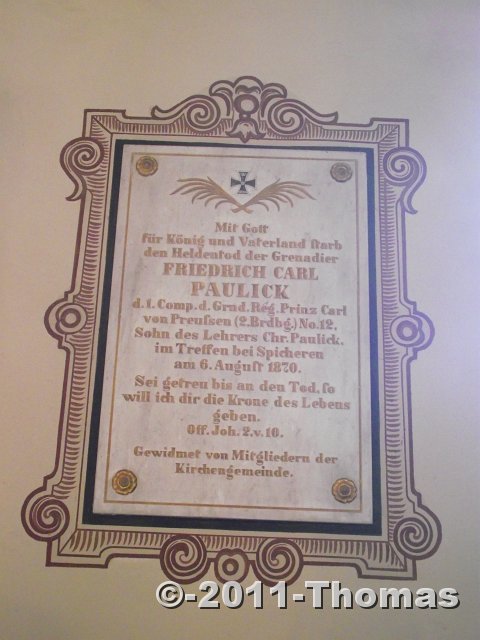 Mit Gott
für König und Vaterland starb
den Heldentod der Grenadier
FRIEDRICH CARL
PAULICK
d. 1. Comp. d. Grnd. Rég. Prinz Carl
von Preussen (2. Brdbg.) No. 12.
Sohn des Lehrers Chr. Paulick.
im Treffen bei Spicheren
am 6. August 1870.
Sei getreu bis an den Tod, so
will ich dir die Krone des Lebens
geben.
Off. Joh. 2. v. 10.
Gewidmet von Mitgliedern der
Kirchengemeinde.
©-2011-Thomas